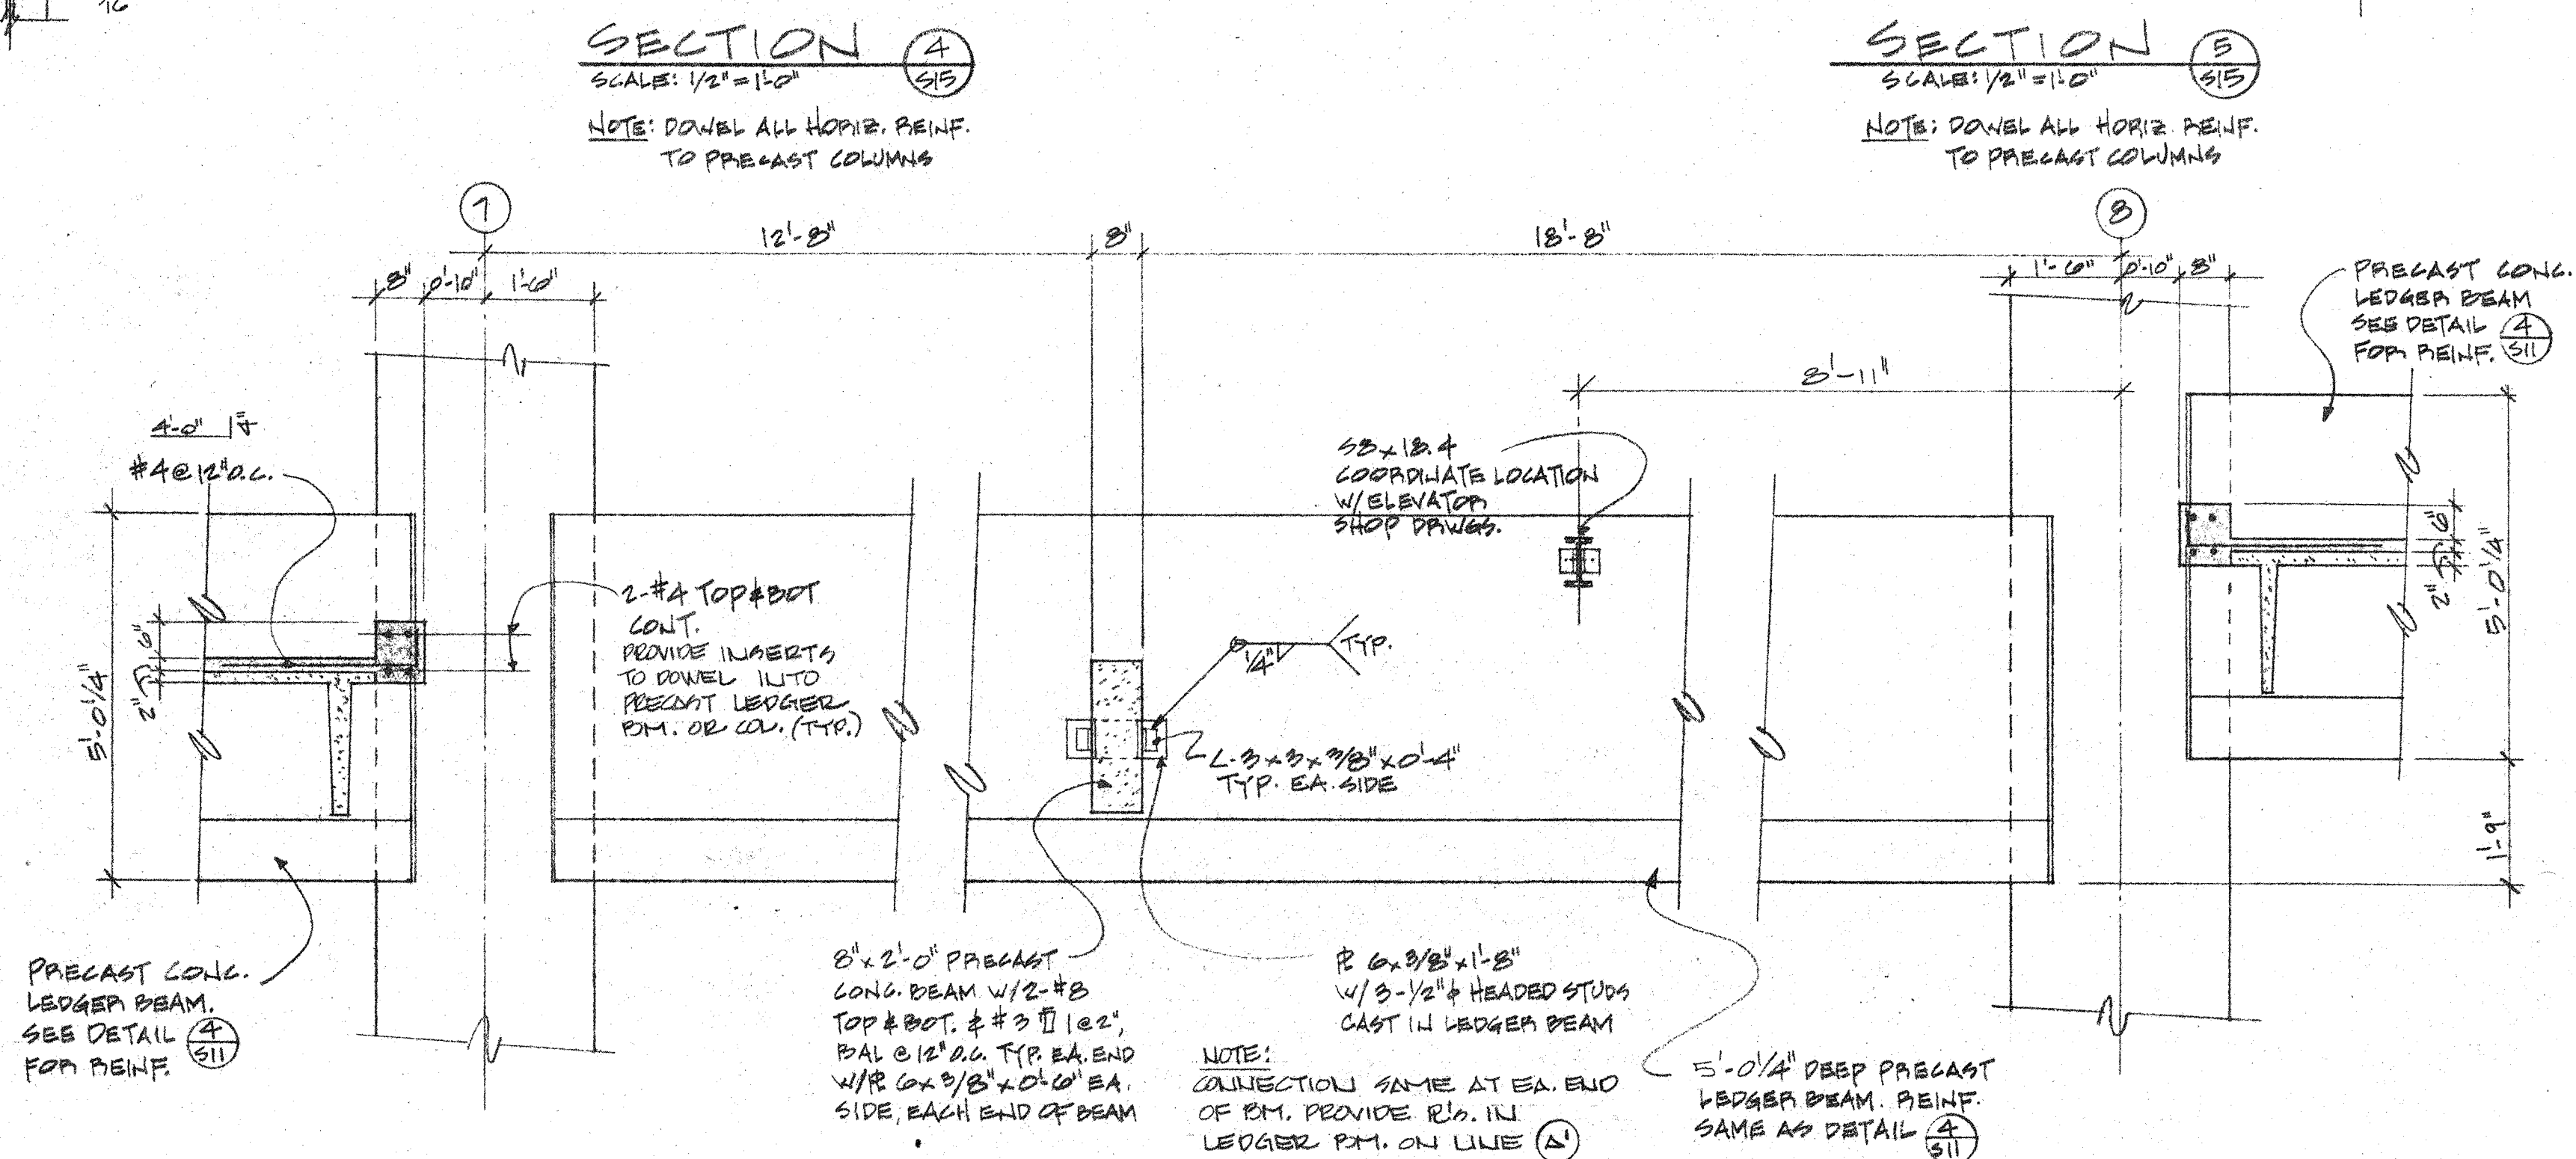 16
SECTION 4
S15
SCALE: 1/2" = 1'-0"
NOTE: DOWEL ALL HORIZ. REINF.
TO PRECAST COLUMNS
SECTION 5
S15
SCALE: 1/2" = 1'-0"
NOTE: DOWEL ALL HORIZ. REINF.
TO PRECAST COLUMNS
7
8
12'-8"
8"
18'-8"
8"
0'-10"
1'-6"
1'-6"
0'-10"
8"
PRECAST CONC.
LEDGER BEAM
SEE DETAIL 4
FOR REINF. S11
8'-11"
4'-0"
#4@12"O.C.
S8x18.4
COORDINATE LOCATION
W/ELEVATOR
SHOP DRWGS.
2-#4 TOP&BOT
CONT.
PROVIDE INSERTS
TO DOWEL INTO
PRECAST LEDGER
BM. OR COL. (TYP.)
6"
2"
5'-0 1/4"
1/4"
TYP.
6"
2"
5'-0 1/4"
1'-9"
L-3x3x3/8"x0'-4"
TYP. EA. SIDE
PRECAST CONC.
LEDGER BEAM.
SEE DETAIL 4
S11
FOR REINF.
8"x2'-0" PRECAST
CONC. BEAM W/2-#8
TOP & BOT. & #3 1@2",
BAL @12"O.C. TYP. EA. END
W/PL 6x3/8"x0'-6" EA.
SIDE, EACH END OF BEAM
PL 6x3/8"x1'-8"
W/3-1/2"φ HEADED STUDS
CAST IN LEDGER BEAM
NOTE:
CONNECTION SAME AT EA. END
OF BM. PROVIDE PL's. IN
LEDGER BM. ON LINE A'
5'-0 1/4" DEEP PRECAST
LEDGER BEAM. REINF.
SAME AS DETAIL 4
S11